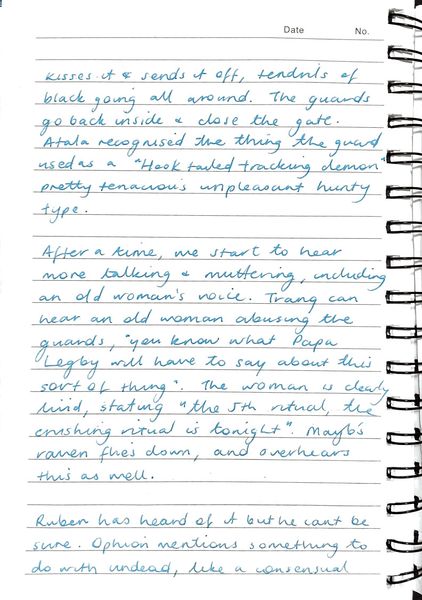 Date No.
kisses it & sends it off, tendrils of
black going all around. The guards
go back inside & close the gate.
Atala recognised the thing the guard
used as a "Hook tailed tracking demon"
pretty tenacious unpleasant hunty
type.
After a time, we start to hear
more talking & muttering, including
an old woman's voice. Trang can
hear an old woman abusing the
guards, "you know what Papa
Legby will have to say about this
sort of thing". The woman is clearly
livid, stating "the 5th ritual, the
crushing ritual is tonight". Mayb's
raven flies down, and overhears
this as well.
Ruben has heard of it but he cant be
sure. Ophion mentions something to
do with undead, like a consensual